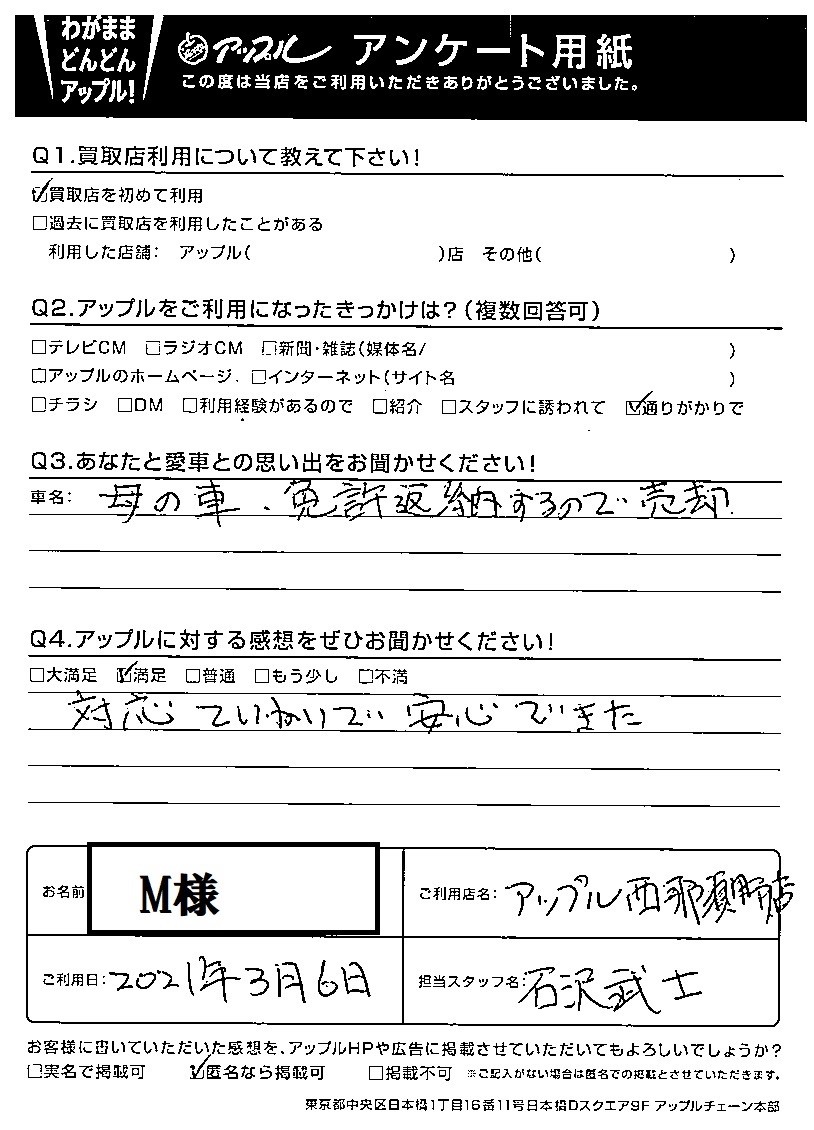 わがまま
どんどん
アップル!
アップル アンケート用紙
この度は当店をご利用いただきありがとうございました。
Q1.買取店利用について教えて下さい!
☑買取店を初めて利用
□過去に買取店を利用したことがある
利用した店舗: アップル( )店 その他( )
Q2.アップルをご利用になったきっかけは?(複数回答可)
□テレビCM □ラジオCM □新聞・雑誌(媒体名/ )
□アップルのホームページ □インターネット(サイト名 )
□チラシ □DM □利用経験があるので □紹介 □スタッフに誘われて ☑通りがかりで
Q3.あなたと愛車との思い出をお聞かせください!
車名: 母の車、免許返納するので売却
Q4.アップルに対する感想をぜひお聞かせください!
□大満足 ☑満足 □普通 □もう少し □不満
対応ていねいで安心できた
お名前 M様
ご利用店名: アップル西那須野店
ご利用日: 2021年3月6日
担当スタッフ名: 石沢武士
お客様に書いていただいた感想を、アップルHPや広告に掲載させていただいてもよろしいでしょうか?
□実名で掲載可 ☑匿名なら掲載可 □掲載不可 ※ご記入がない場合は匿名での掲載とさせていただきます。
東京都中央区日本橋1丁目16番11号日本橋Dスクエア9F アップルチェーン本部